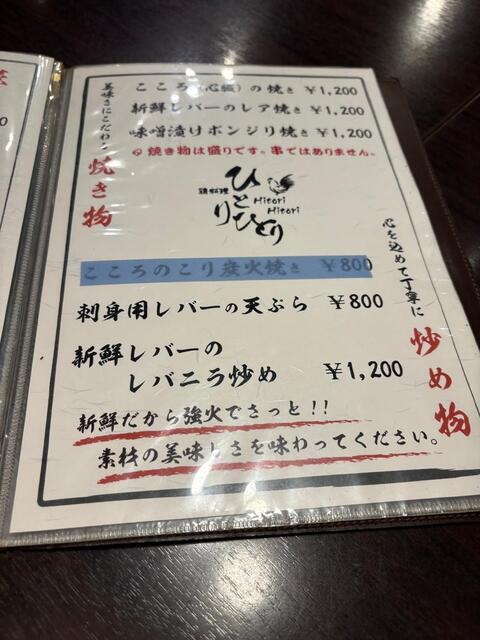 美味さにこだわる
焼き物
こころ(心臓)の焼き ￥1,200
新鮮レバーのレア焼き ￥1,200
味噌漬けボンジリ焼き ￥1,200
焼き物は盛りです。串ではありません。
鶏料理
ひとりひとり
Hitori
Hitori
心を込めて丁寧に
炒め物
こころのこり炭火焼き ￥800
刺身用レバーの天ぷら ￥800
新鮮レバーの
レバニラ炒め ￥1,200
新鮮だから強火でさっと!!
素材の美味しさを味わってください。